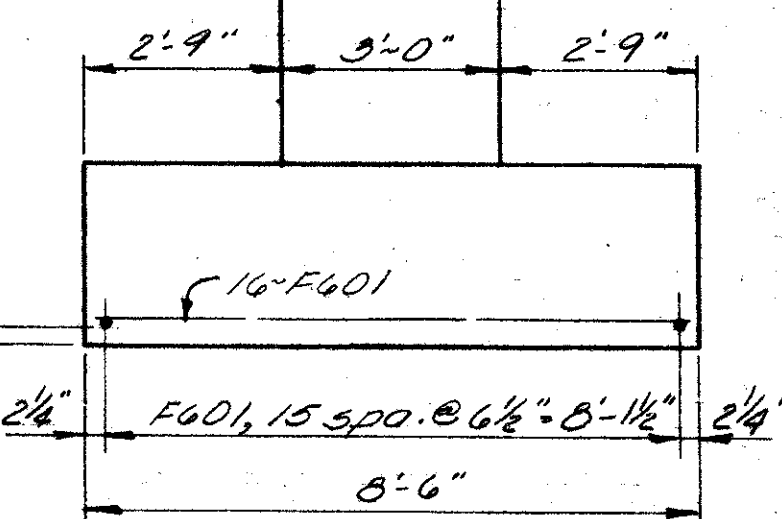 2'-9" 3'-0" 2'-9"
16~F601
2¼" F601, 15 spa. @ 6½" = 8'-1½" 2¼"
8'-6"